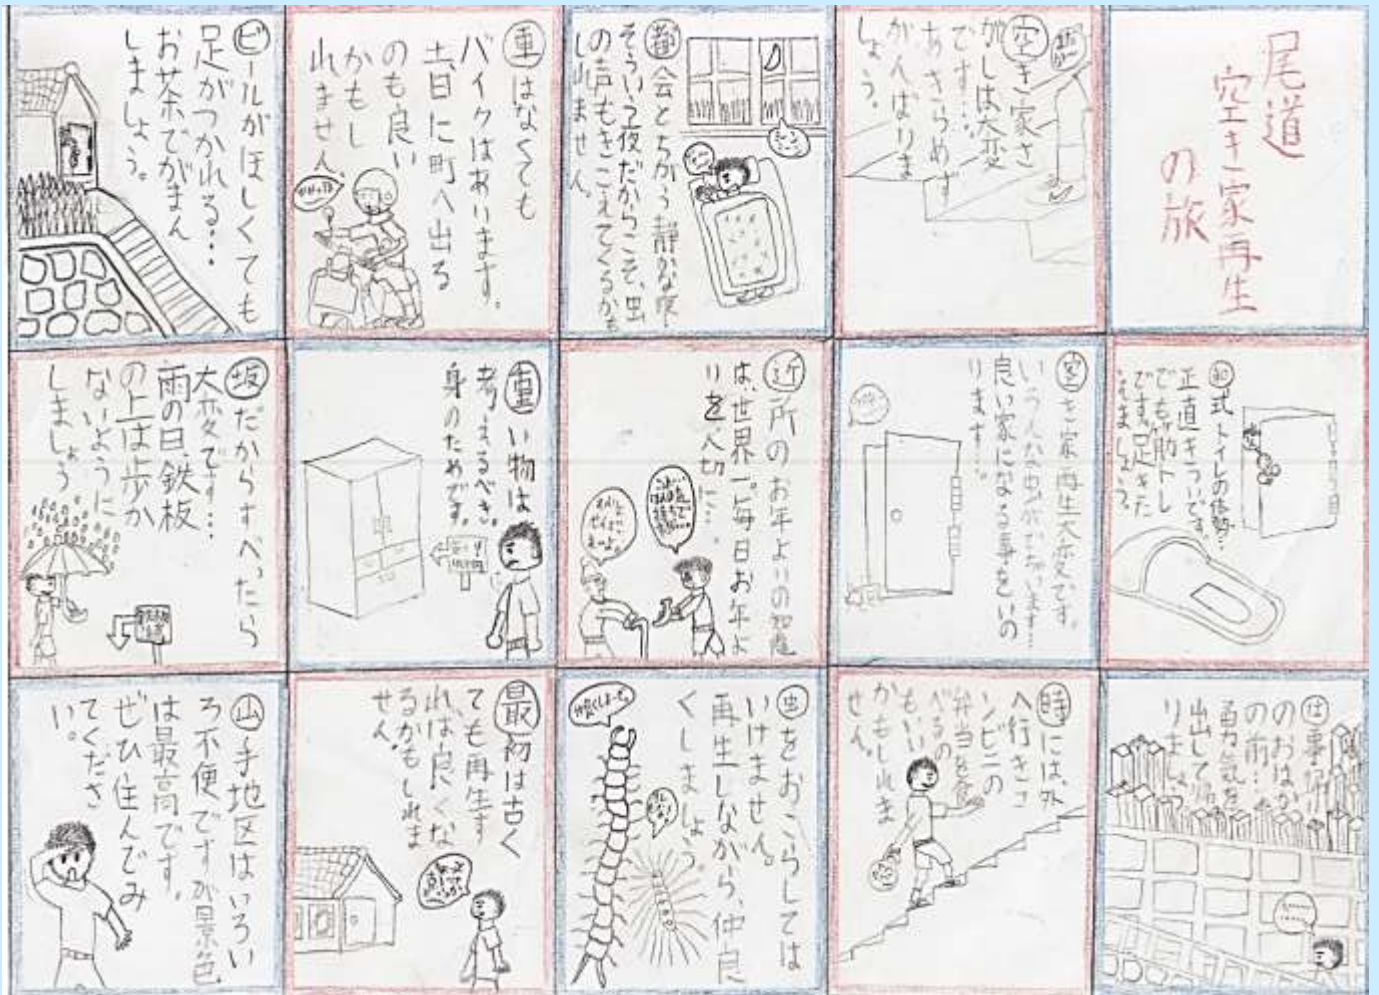 尾道
空き家再生
の旅
空き家さ
がしは大変
です…。
あきらめず
がんばりま
しょう。
都会とちがう静かな夜…
そういう夜だからこそ、虫
の声もきこえてくるかも
しれません。
車はなくても
バイクはあいます。
土日に町へ出る
のも良い
かもし
れません。
ビールがほしくても
足がつかれる…
お茶でがまん
しましょう。
和式トイレの体勢…
正直きついです。
でも、筋トレ
です。足きた
えましょう。
空き家再生大変です。
いろんな虫がでちゃいます…
良い家になる事をいの
ります…。
近所のお年よりの知恵
は、世界一。毎日お年よ
りを大切に…。
重い物は
考えるべき。
身のためです。
坂だからすべったら
大変です…
雨の日、鉄板
の上は歩か
ないように
しましょう
仕事帰り
のおはか
の前…
勇気を
出して帰
りましょう
時には、外
へ行きコ
ンビニの
弁当を食
べるの
もいい
かもしれま
せん。
虫をおこらしては
いけません。
再生しながら、仲良
くしましょう。
仲良くしよーぜ
最初は古く
ても再生す
れば良くな
るかもしれま
せん。
山手地区はいろい
ろ不便ですが景色
は最高です。
ぜひ住んでみ
てくださ
い。